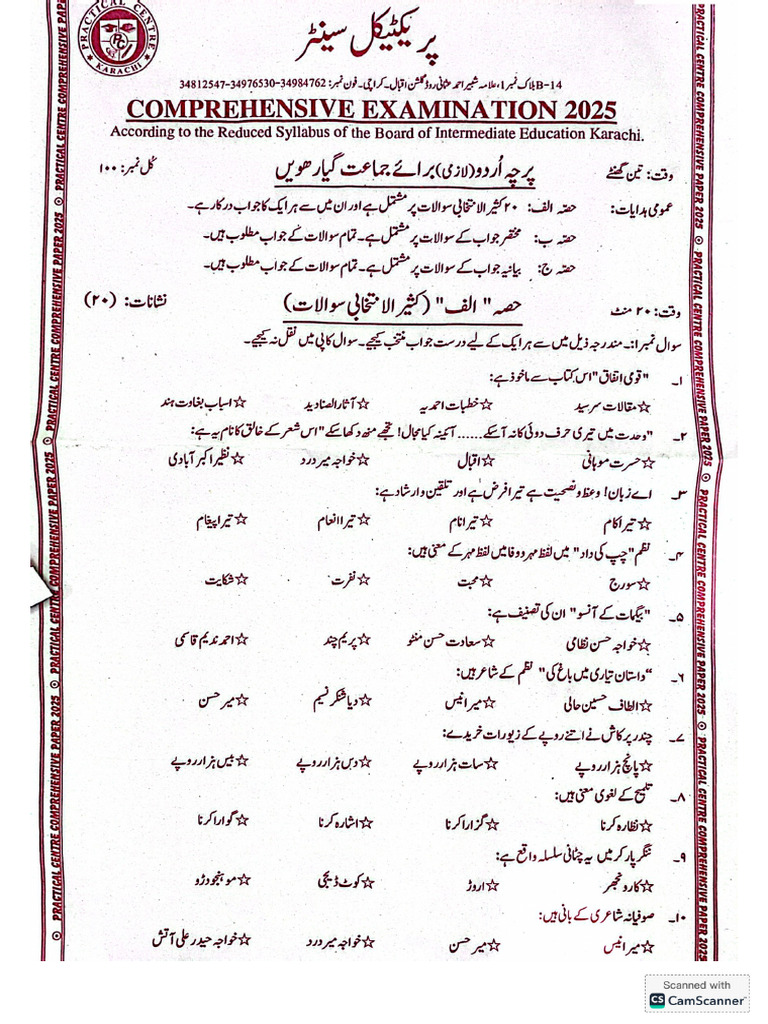 PRACTICAL CENTRE
KARACHI
پریکٹیکل سینٹر
B-14 بلاک نمبر ۱، علامہ شبیر احمد عثانی روڈ گلشن اقبال۔ کراچی۔ فون نمبر: 34984762-34976530-34812547
COMPREHENSIVE EXAMINATION 2025
According to the Reduced Syllabus of the Board of Intermediate Education Karachi.
وقت: تین گھنٹے پرچہ اُردو (لازمی) برائے جماعت گیارھویں کُل نمبر: ۱۰۰
عمومی ہدایات: حصّہ الف: ۲۰ کثیر الانتخابی سوالات پر مشتمل ہے اور ان میں سے ہر ایک کا جواب درکار ہے۔
حصّہ ب: مختصر جواب کے سوالات پر مشتمل ہے۔ تمام سوالات کے جواب مطلوب ہیں۔
حصّہ ج: بیانیہ جواب کے سوالات پر مشتمل ہے۔ تمام سوالات کے جواب مطلوب ہیں۔
وقت: ۲۰ منٹ حصہ "الف" (کثیر الانتخابی سوالات) نشانات: (۲۰)
سوال نمبر ۱:۔ مندرجہ ذیل میں سے ہر ایک کے لیے درست جواب منتخب کیجیے۔ سوال کاپی میں نقل نہ کیجیے۔
۱۔ "قومی اتفاق" اس کتاب سے ماخوذ ہے:
☆مقالات سرسید ☆خطبات احمدیہ ☆آثار الصنادید ☆اسباب بغاوت ہند
۲۔ "وحدت میں تیری حرف دوئی کا نہ آسکے...... آئینہ کیا مجال! تجھے منھ دکھا سکے" اس شعر کے خالق کا نام یہ ہے:
☆حسرت موہانی ☆اقبال ☆خواجہ میر درد ☆نظیر اکبر آبادی
۳۔ اے زبان! وعظ و نصیحت ہے تیرا فرض اور تلقین و ارشاد ہے:
☆تیرا کام ☆تیرا نام ☆تیرا انعام ☆تیرا پیغام
۴۔ نظم "چپ کی داد" میں لفظ مہر و وفا میں لفظ مہر کے معنی ہیں:
☆سورج ☆محبت ☆نفرت ☆شکایت
۵۔ "بیگمات کے آنسو" ان کی تصنیف ہے:
☆خواجہ حسن نظامی ☆سعادت حسن منٹو ☆پریم چند ☆احمد ندیم قاسمی
۶۔ "داستان تیاری میں باغ کی" نظم کے شاعر ہیں:
☆الطاف حسین حالی ☆میر انیس ☆دیا شنکر نسیم ☆میر حسن
۷۔ چندر پرکاش نے اتنے روپے کے زیورات خریدے:
☆پانچ ہزار روپے ☆سات ہزار روپے ☆دس ہزار روپے ☆بیس ہزار روپے
۸۔ تلمیح کے لغوی معنی ہیں:
☆نظارہ کرنا ☆گزارا کرنا ☆اشارہ کرنا ☆گوارا کرنا
۹۔ ننگر پارکر میں یہ چٹانی سلسلہ واقع ہے:
☆کارونجھر ☆اروڑ ☆کوٹ ڈیجی ☆موہنجودڑو
۱۰۔ صوفیانہ شاعری کے بانی ہیں:
☆میر انیس ☆میر حسن ☆خواجہ میر درد ☆خواجہ حیدر علی آتش
PRACTICAL CENTRE COMPREHENSIVE PAPER 2025
PRACTICAL CENTRE COMPREHENSIVE PAPER 2025
Scanned with
CS CamScanner